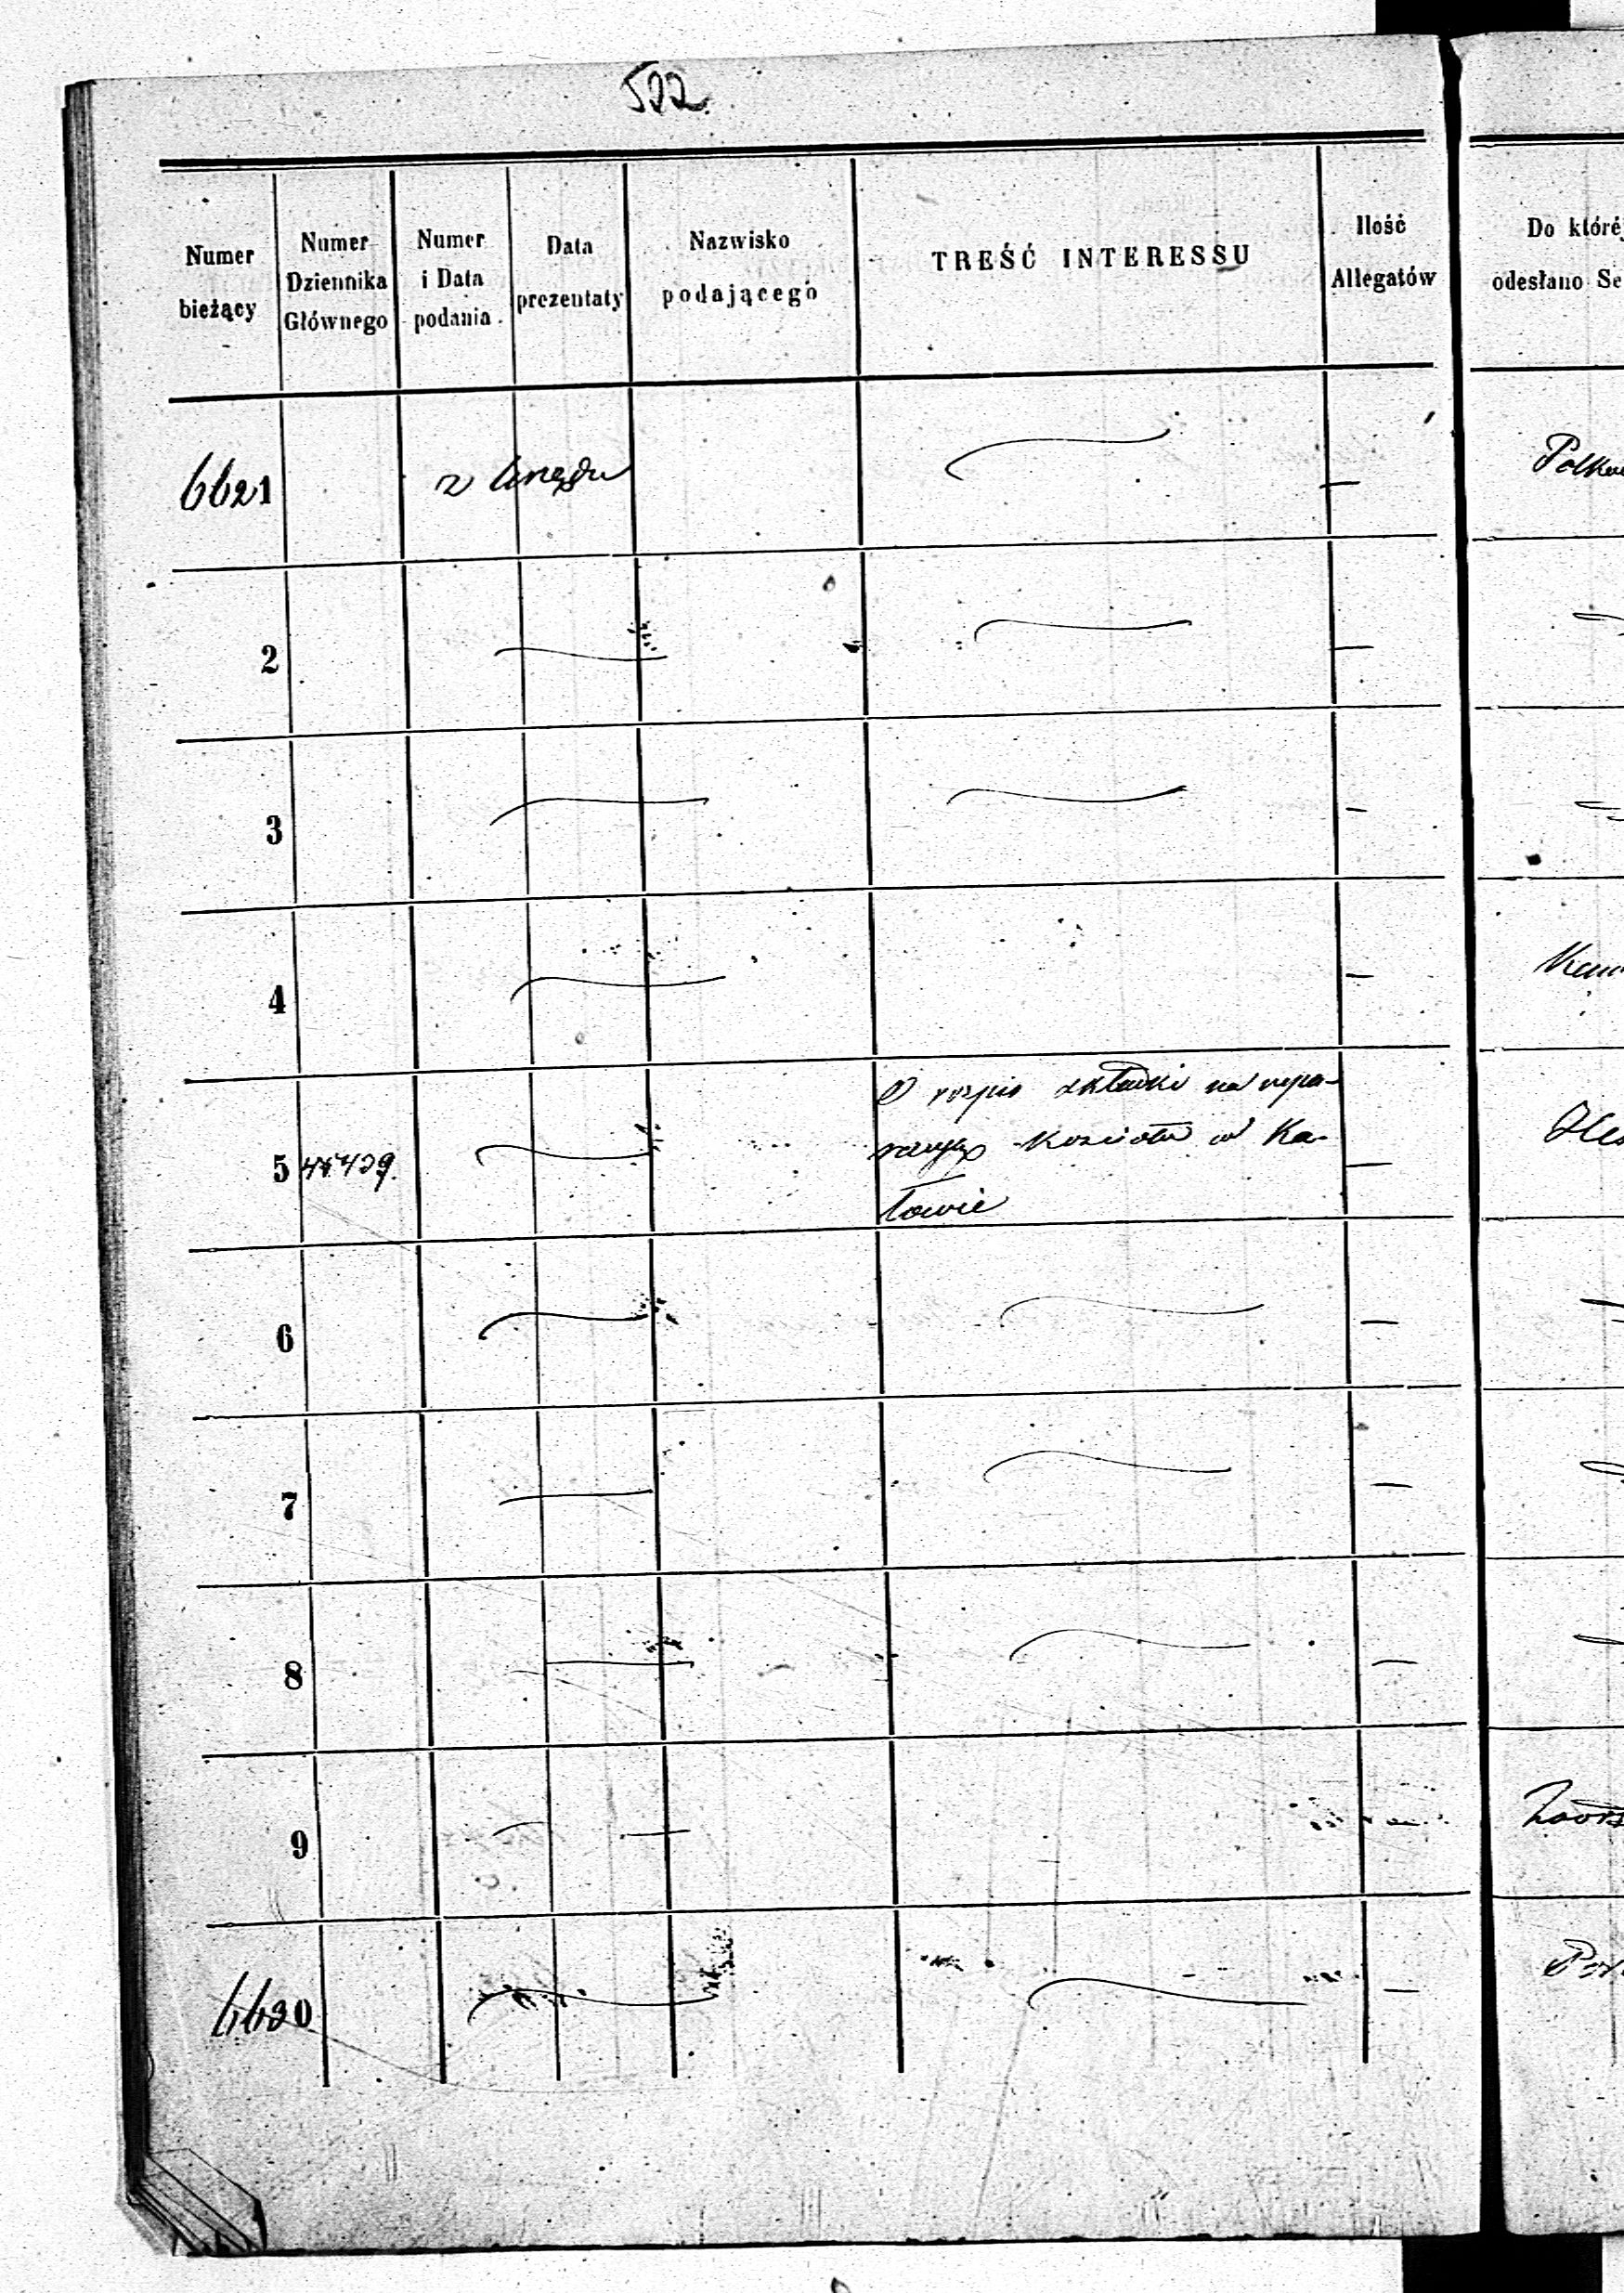 522.
Numer bieżący
Numer Dziennika Głównego
Numer i Data podania
Data prezentaty
Nazwisko podającego
TREŚĆ INTERESSU
Ilość Allegatów
Do któré
odesłano Se
6621
z Urzędu
2
3
4
5
O rozpis składki na repa-
racyę Kościoła w Ka-
łowie
6
7
8
9
6630